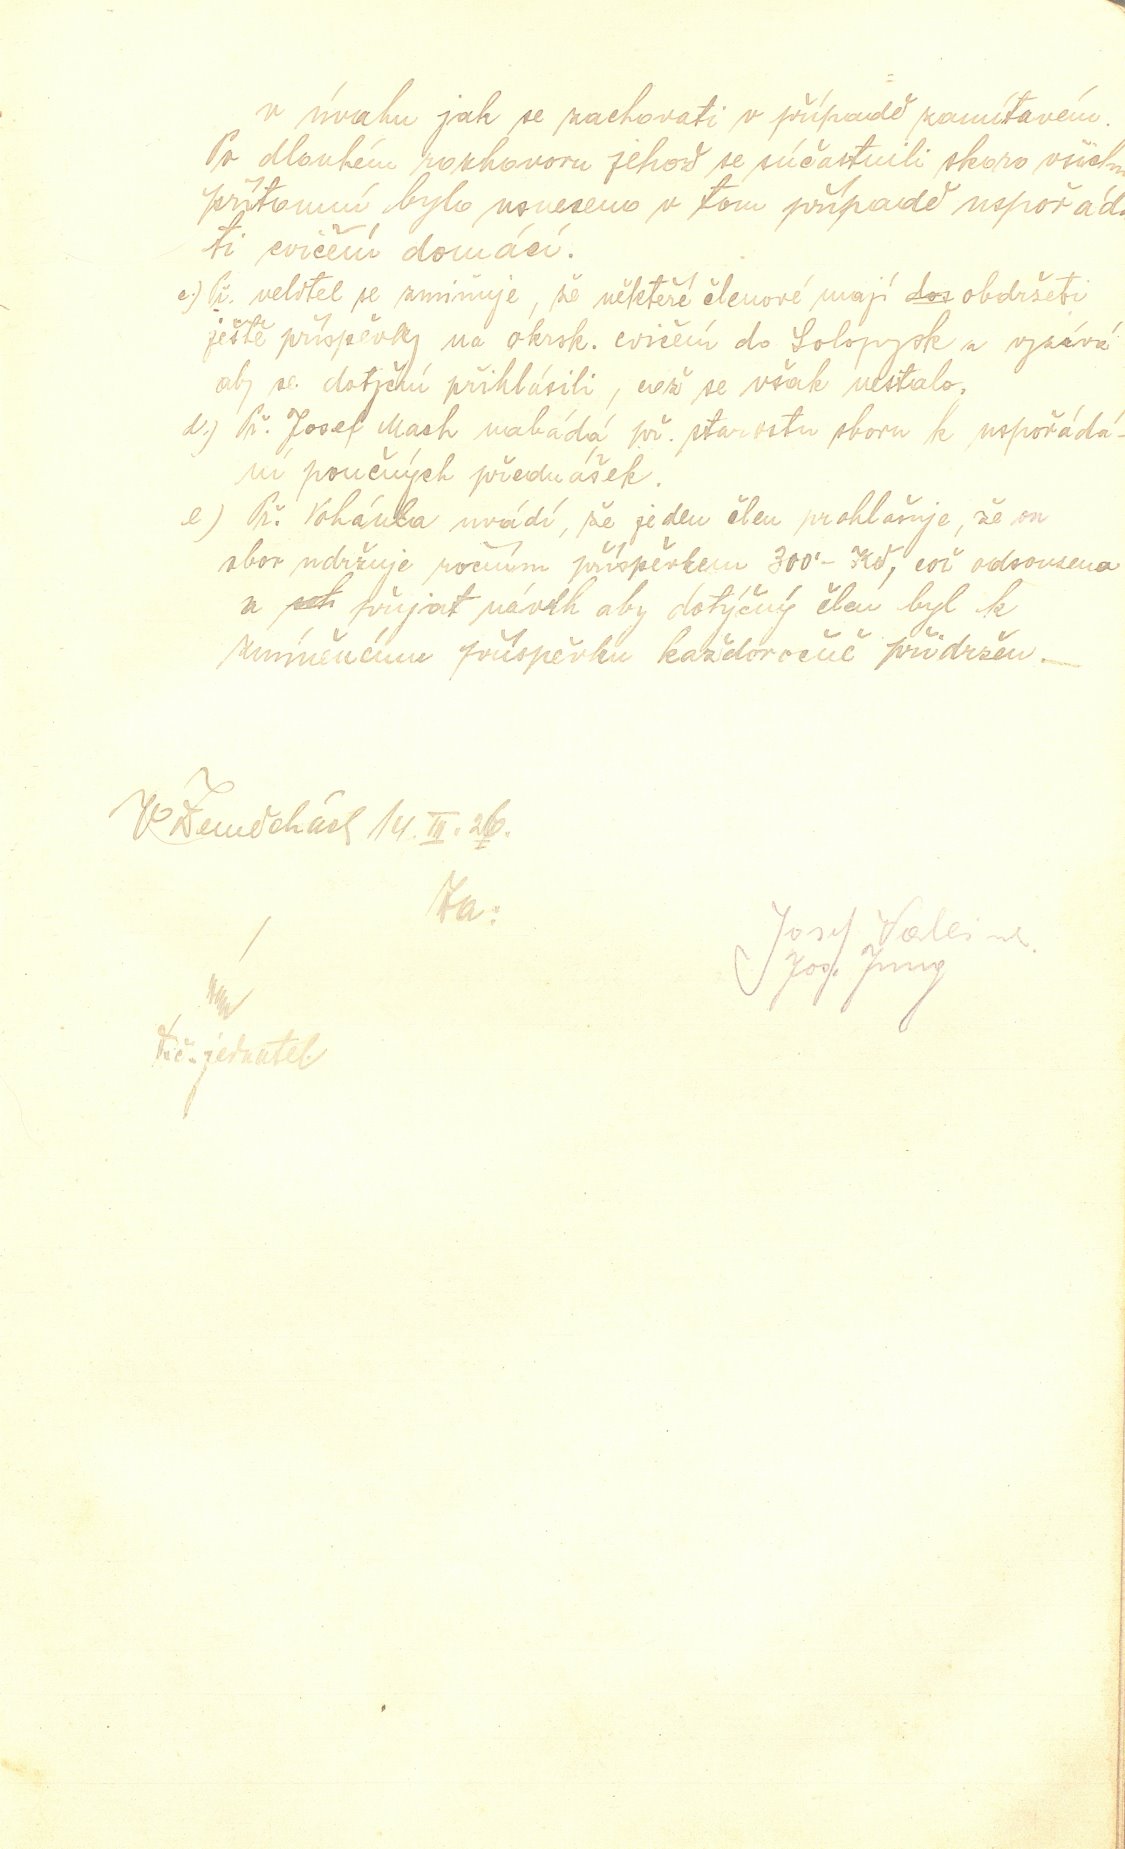 v úvahu jak se zachovati v případě zamítavém.
Po dlouhém rozhovoru jehož se súčastnili skoro všichni
přítomní bylo usneseno v tom případě uspořáda
ti cvičení domácí.
c.) Př. velitel se zmiňuje, že někteří členové mají dos obdržeti
ještě příspěvky na okrsk. cvičení do Solopysk a vyzívá
aby se dotyční přihlásili, což se však nestalo.
d.) Př. Josef Mach nabádá př. starostu sboru k uspořádá-
ní poučných přednášek.
e) Př. Vohánka uvádí, že jeden člen prohlašuje, že on
sbor udržuje ročním příspěvkem 300'- Kč, což odsouzeno
a přijat návrh aby dotyčný člen byl k
zmíněnému příspěvku každoročně přidržen.—
V Žemděhách 14. III. 26.
Za:
Josef
Jos. Jung
t.č. jednatel